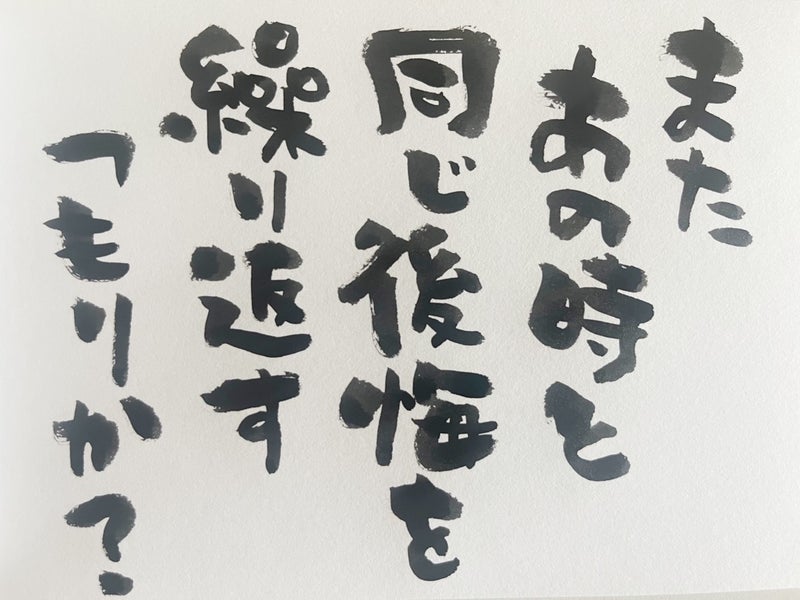 また
あの時と
同じ後悔を
繰り返す
つもりか?